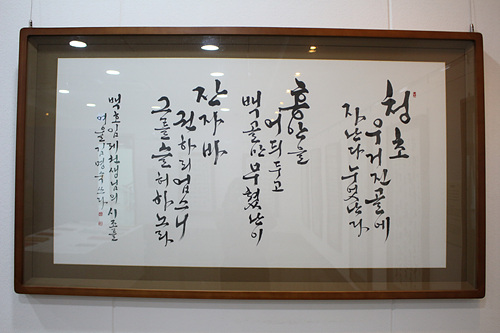 청초
우거진 골에
자난다 누엇난다
홍안을
어듸두고
백골만 무쳤난이
잔자바
권하리 업스니
그를 슬허하노라
백호 임제 선생님의 시조를
여울 김명숙 쓰다